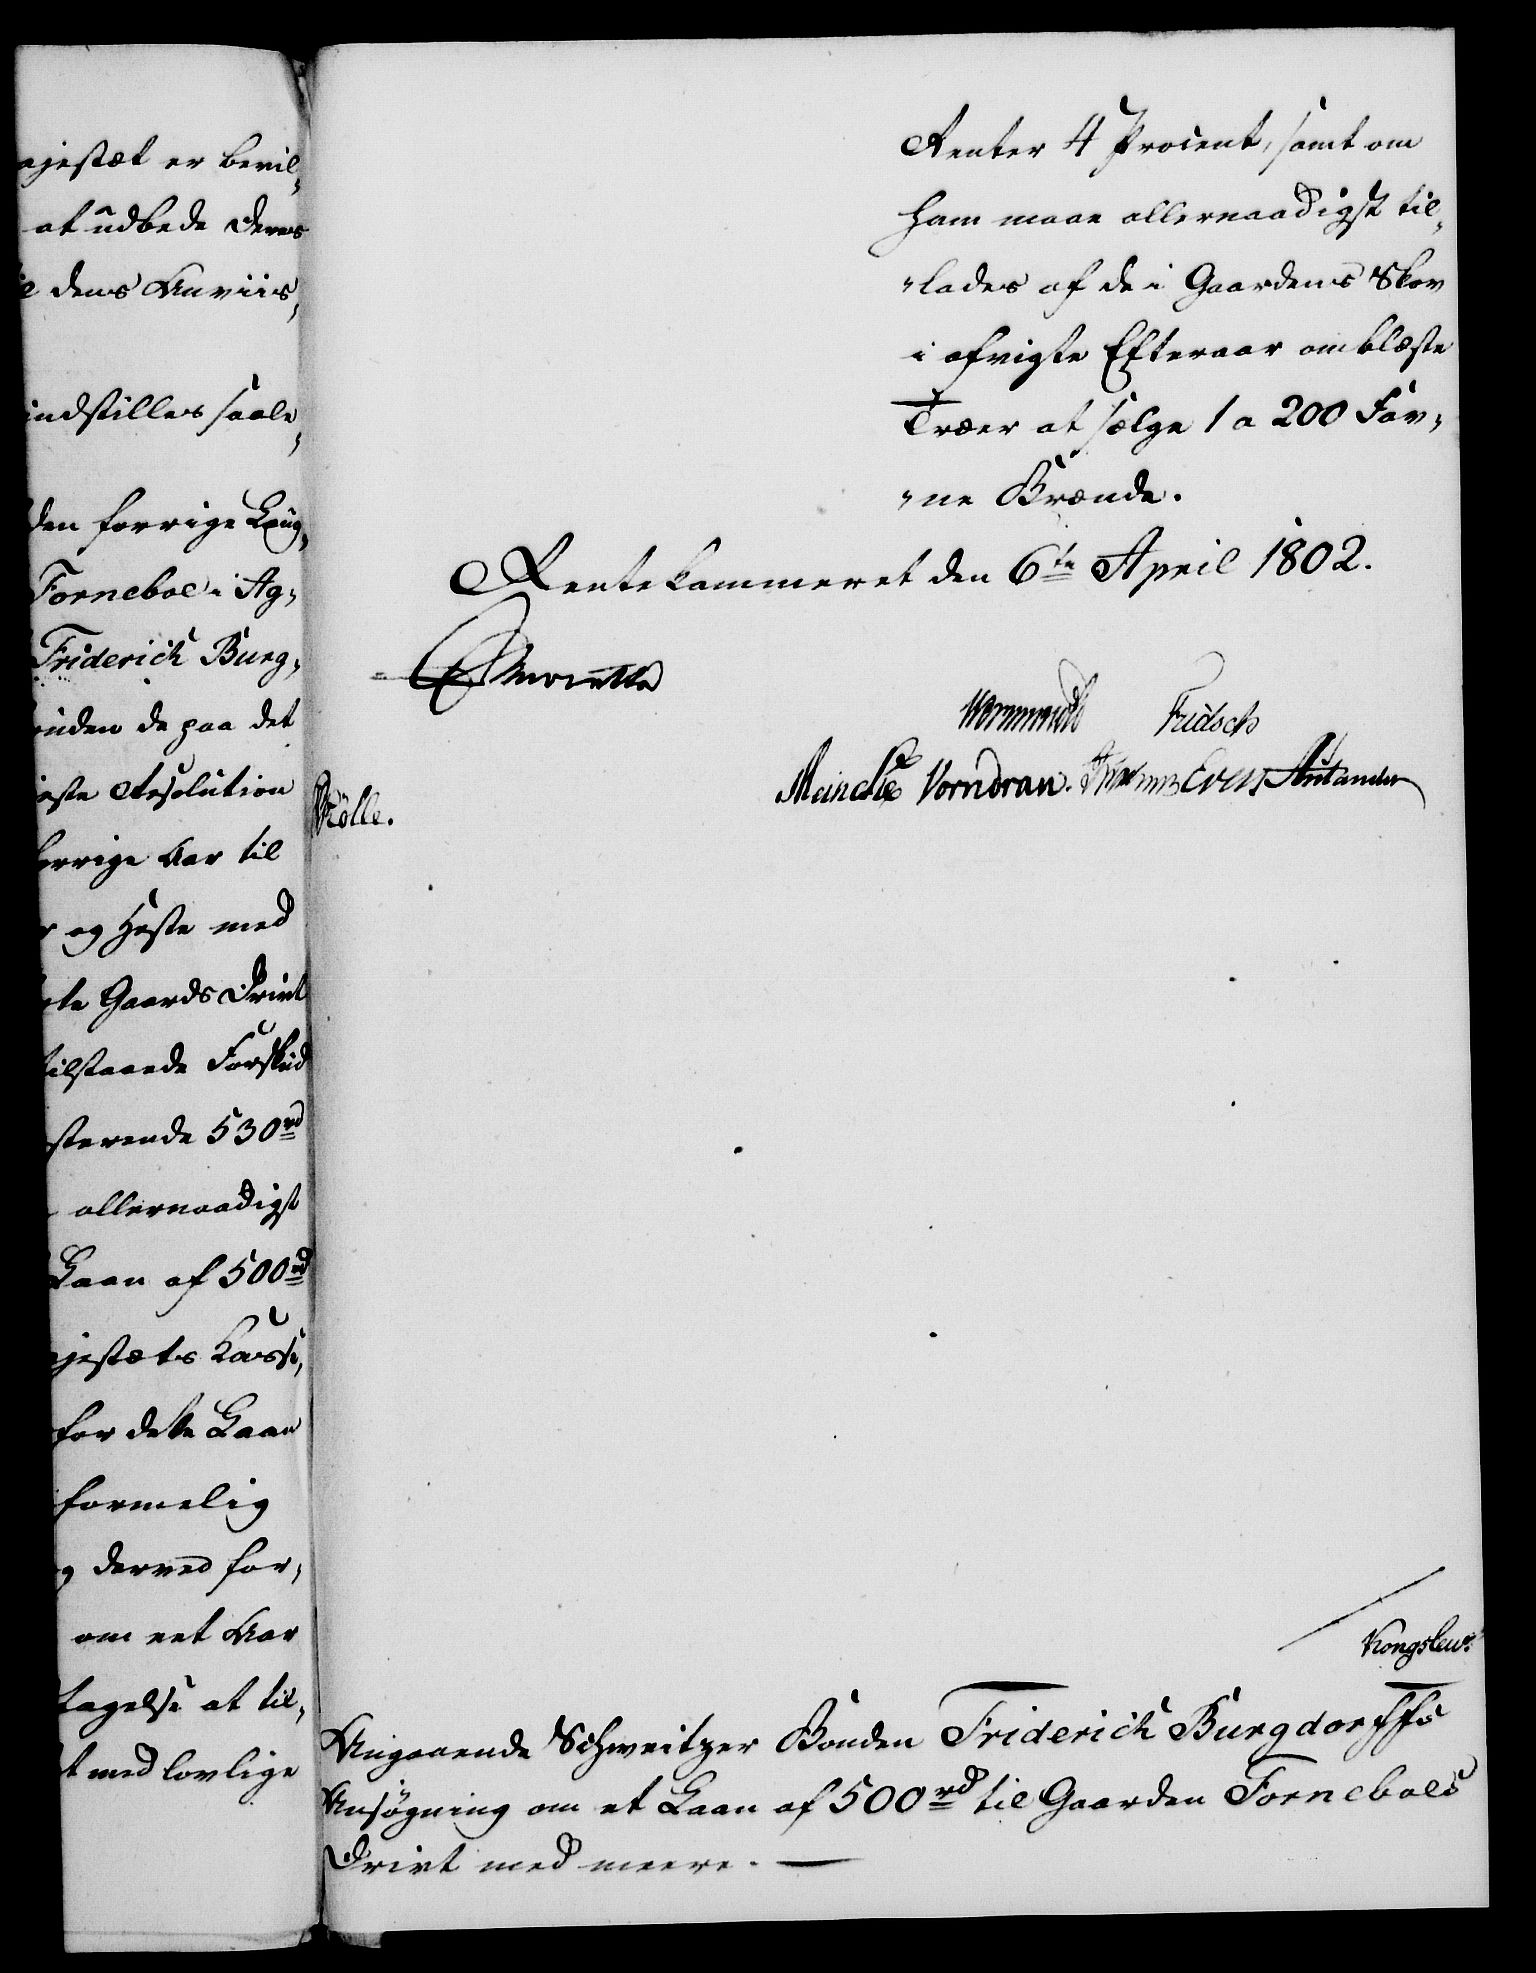 ajestæt er bevil„
at udbede Deres
dens Anviis„
indstilles saale„
den forrige Laug„
Forneboe i Ag„
Friderich Burg„
inden de paa det
Resolution
forrige Aar til
og Heste med
Gaards Drivt
tilstaaende Forskud
sterende 530 rd
allernaadigst
Laan af 500 rd
ajestæts Kasse,
for dette Laan
formelig
derved for„
om eet Aar
tagelse at til„
med lovlige
Renter 4 Procent, samt om
ham maae allernaadigst til„
„lades af de i Gaardens Skov
i afvigte Efteraar omblæste
Træer at sælge 1 a 200 Fav„
„ne Brænde.
Rentekammeret den 6te April 1802.
Wormskiold Fridsch
Meincke Vorndran. Evers
Rölle.
Kongslew.
Angaaende Schweitzer Bonden Friderich Burgdorffs
Ansøgning om et Laan af 500 rd til Gaarden Forneboes
Drivt med meere. —